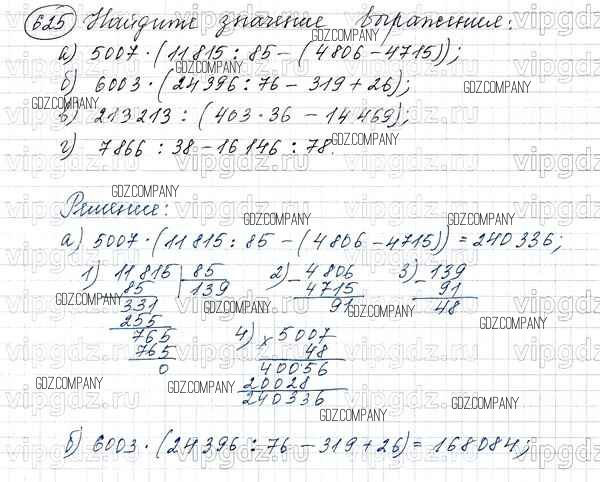 625 Найдите значение выражения:
а) 5007 · (11815 : 85 − (4806 − 4715));
б) 6003 · (24396 : 76 − 319 + 26);
в) 213213 : (403 · 36 − 14469);
г) 7866 : 38 − 16146 : 78.
Решение:
а) 5007 · (11815 : 85 − (4806 − 4715)) = 240336;
1) 11815 85 2) − 4806 3) − 139
85 139 4715 91
331 91 48
255
766 4) × 5007
765 48
0 40056
20028
240336
б) 6003 · (24396 : 76 − 319 + 26) = 168084;
GDZ.COMPANY
vipgdz.ru